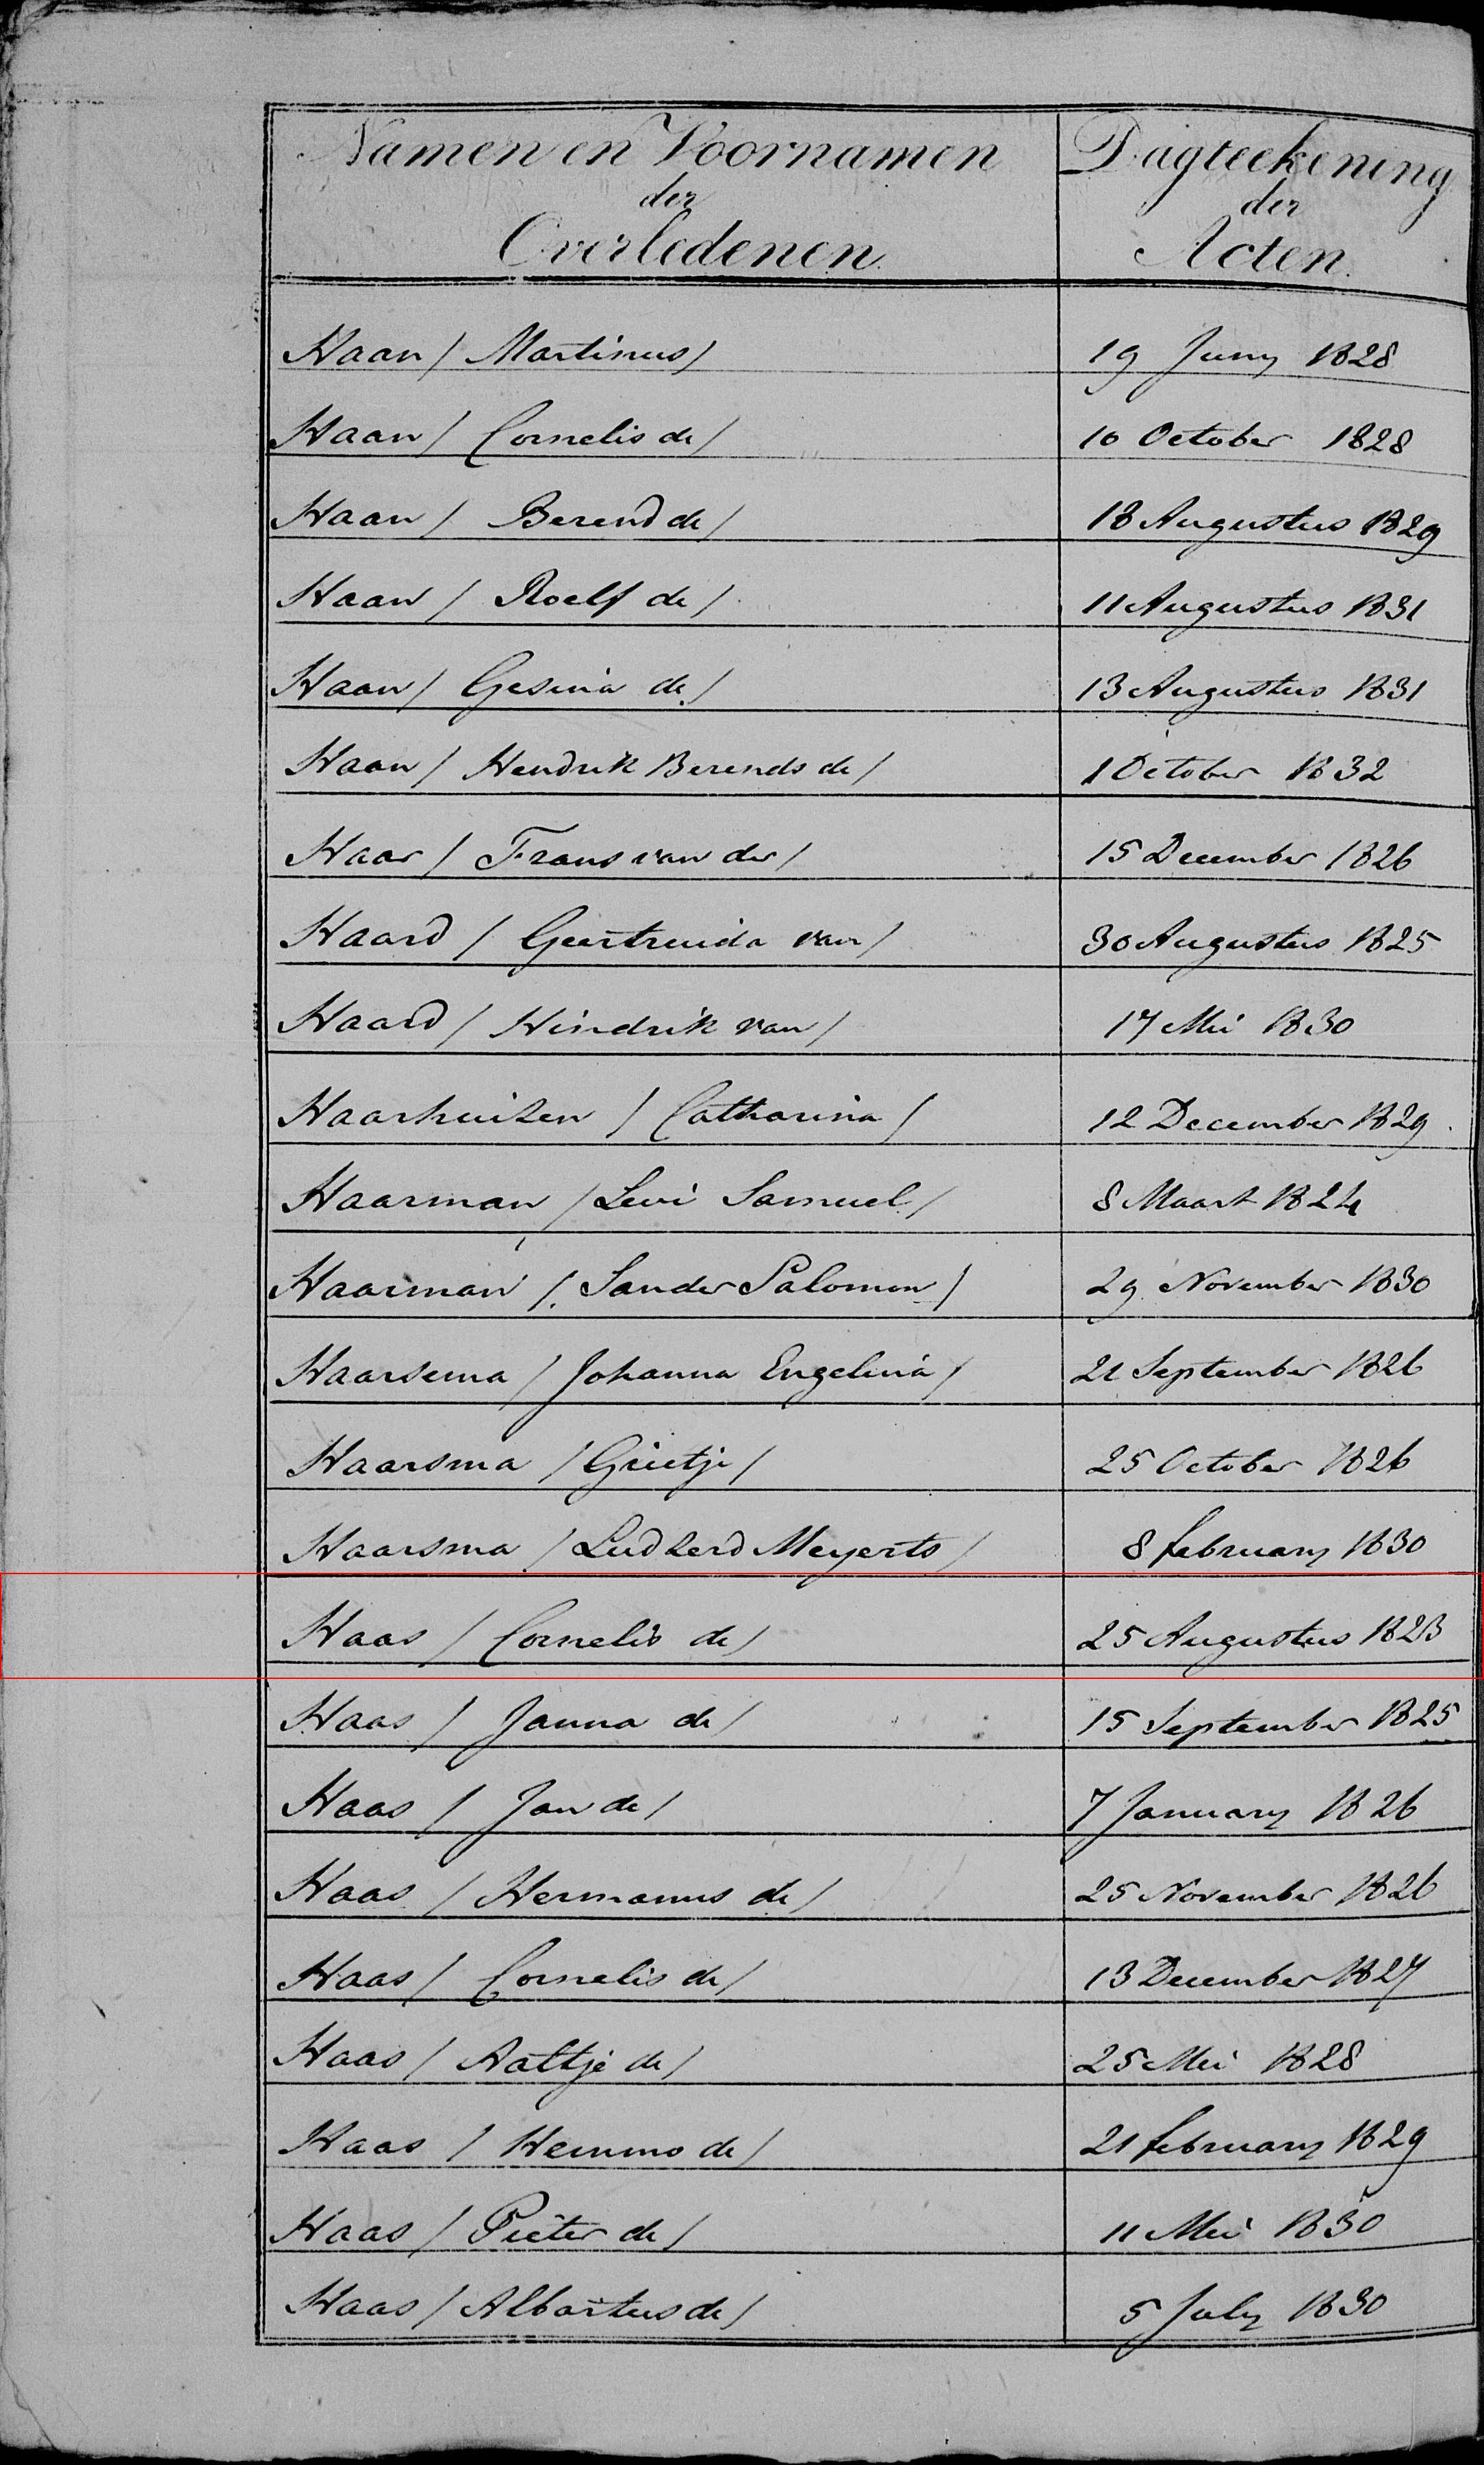 Namen en Voornamen
der
Overledenen.
Dagteekening
der
Acten.
Haan / Martinus / 19 Juny 1828
Haan / Cornelis de / 10 October 1828
Haan / Berend de / 18 Augustus 1829
Haan / Roelf de / 11 Augustus 1831
Haan / Gesina de / 13 Augustus 1831
Haan / Hendrik Berends de / 1 October 1832
Haar / Frans van der / 15 December 1826
Haard / Geertruida van / 30 Augustus 1825
Haard / Hindrik van / 17 Mei 1830
Haarhuizen / Catharina / 12 December 1829.
Haarman / Levi Samuel / 8 Maart 1824
Haarman / Sander Salomon / 29 November 1830
Haarsema / Johanna Engelina / 21 September 1826
Haarsma / Grietje / 25 October 1826
Haarsma / Ludzerd Meyerts / 8 february 1830
Haas / Cornelis de / 25 Augustus 1823
Haas / Janna de / 15 September 1825
Haas / Jan de / 7 January 1826
Haas / Hermanus de / 25 November 1826
Haas / Cornelis de / 13 December 1827
Haas / Aaltje de / 25 Mei 1828
Haas / Hemmo de / 21 february 1829
Haas / Pieter de / 11 Mei 1830
Haas / Albartus de / 5 July 1830